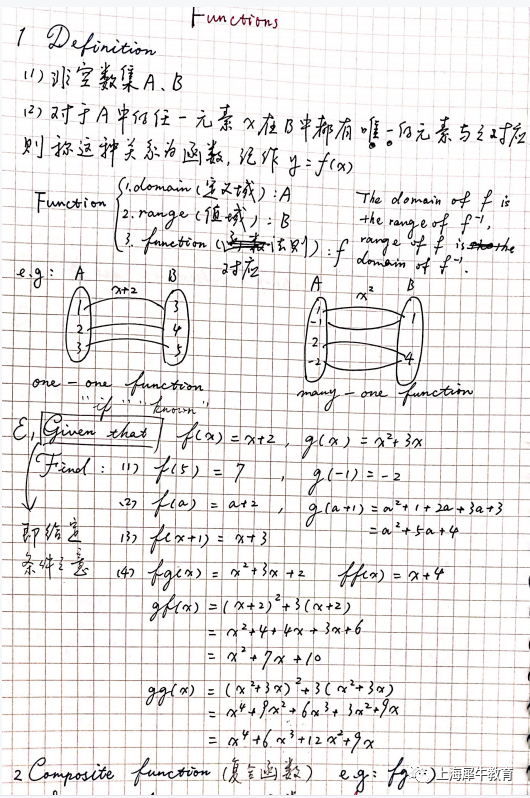 Functions
1 Definition
(1) 非空数集A、B
(2) 对于A中的任一元素x在B中都有唯一的元素与之对应
则称这种关系为函数, 记作 y=f(x)
Function
1. domain (定义域) : A
2. range (值域) : B
3. function (对应法则) : f
The domain of f is
the range of f⁻¹,
range of f is the
domain of f⁻¹.
e.g:
A B
x+2
1 3
2 4
3 5
one-one function
A B
x²
1
-1 1
2
-2 4
many-one function
"if" "known"
E, Given that f(x) = x+2, g(x) = x²+3x
Find: (1) f(5) = 7, g(-1) = -2
(2) f(a) = a+2, g(a+1) = a²+1+2a+3a+3
= a²+5a+4
即给定
条件之意
(3) f(x+1) = x+3
(4) fg(x) = x²+3x+2 ff(x) = x+4
gf(x) = (x+2)²+3(x+2)
= x²+4+4x+3x+6
= x²+7x+10
gg(x) = (x²+3x)²+3(x²+3x)
= x⁴+9x²+6x³+3x²+9x
= x⁴+6x³+12x²+9x
2 Composite function (复合函数) e.g: fg
上海犀牛教育